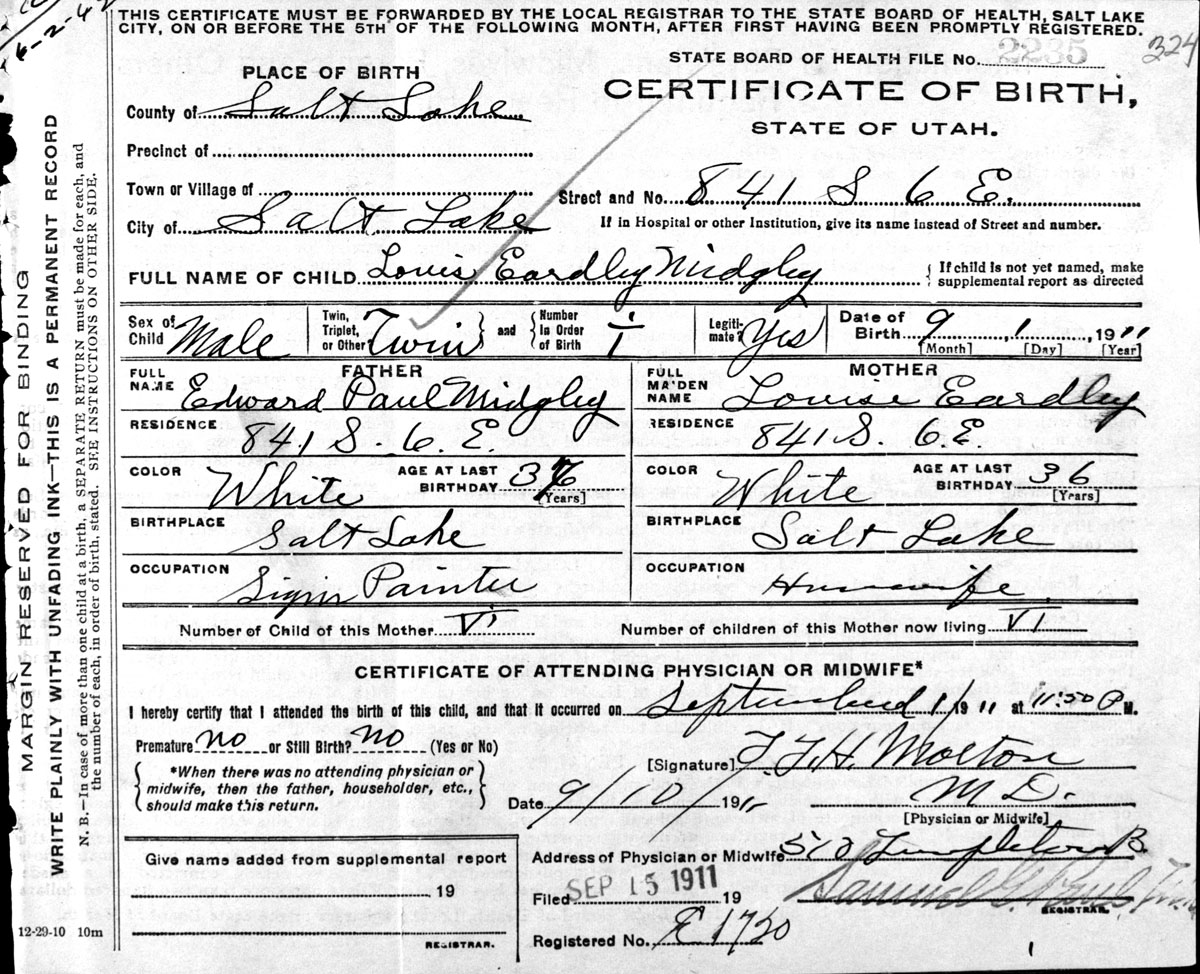 6-2-6-2
THIS CERTIFICATE MUST BE FORWARDED BY THE LOCAL REGISTRAR TO THE STATE BOARD OF HEALTH, SALT LAKE
CITY, ON OR BEFORE THE 5TH OF THE FOLLOWING MONTH, AFTER FIRST HAVING BEEN PROMPTLY REGISTERED.
324
STATE BOARD OF HEALTH FILE No. 2235
CERTIFICATE OF BIRTH,
STATE OF UTAH.
PLACE OF BIRTH
County of Salt Lake
Precinct of
Town or Village of
Street and No. 841 S 6 E.
City of Salt Lake
If in Hospital or other Institution, give its name instead of Street and number.
FULL NAME OF CHILD Louis Eardley Midgley
If child is not yet named, make
supplemental report as directed
Sex of Child Male
Twin, Triplet, or Other? Twin and Number In Order of Birth 1
Legitimate? Yes
Date of Birth 9, 1, 1911
[Month] [Day] [Year]
FATHER
FULL NAME Edward Paul Midgley
RESIDENCE 841 S. 6. E.
COLOR White AGE AT LAST BIRTHDAY 36 [Years]
BIRTHPLACE Salt Lake
OCCUPATION Sign Painter
MOTHER
FULL MAIDEN NAME Louise Eardley
RESIDENCE 841 S. 6.E.
COLOR White AGE AT LAST BIRTHDAY 36 [Years]
BIRTHPLACE Salt Lake
OCCUPATION Housewife
Number of Child of this Mother VI Number of children of this Mother now living VI
CERTIFICATE OF ATTENDING PHYSICIAN OR MIDWIFE*
I hereby certify that I attended the birth of this child, and that it occurred on September 1 1911 at 11:50 P M.
Premature? no or Still Birth? no (Yes or No)
[Signature] H. Molton
*When there was no attending physician or
midwife, then the father, householder, etc.,
should make this return.
Date 9/10/1911
M D.
[Physician or Midwife]
Give name added from supplemental report
19
REGISTRAR.
Address of Physician or Midwife 510 Templeton B
Filed SEP 15 1911 19
Samuel G. Paul
REGISTRAR.
Registered No. E 1720
12-29-10 10m
MARGIN RESERVED FOR BINDING
WRITE PLAINLY WITH UNFADING INK—THIS IS A PERMANENT RECORD
N. B.—In case of more than one child at a birth, a SEPARATE RETURN must be made for each, and
the number of each, in order of birth, stated. SEE INSTRUCTIONS ON OTHER SIDE.